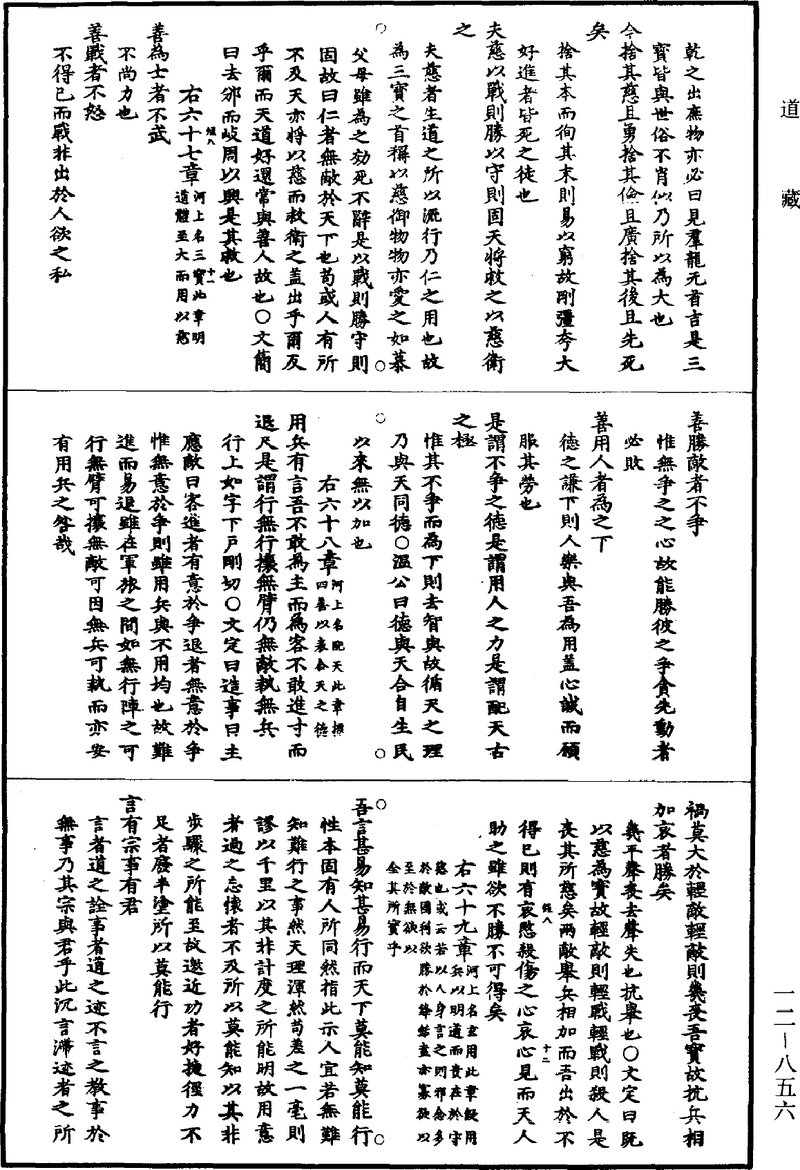 道藏
乾之出庶物亦必曰見羣龍无首吉是三
寳皆與世俗不肖似乃所以為大也
今捨其慈且勇捨其儉且廣捨其後且先死
矣
捨其本而徇其末則易以窮故剛彊夸大
好進者皆死之徒也
夫慈以戰則勝以守則固天將救之以慈衛
之
夫慈者生道之所以流行乃仁之用也故
為三寳之首稱以慈御物物亦愛之如慕
父母雖為之効死不辭是以戰則勝守則
固故曰仁者無敵於天下也苟或人有所
不及天亦將以慈而救衛之蓋出乎爾反
乎爾而天道好還常與善人故也○文簡
曰去邠而岐周以興是其救也
右六十七章河上名三寳此章明
道體至大而用以慈
經八
十一
善為士者不武
不尚力也
善戰者不怒
不得已而戰非出於人欲之私
善勝敵者不争
惟無争之之心故能勝彼之争貪先動者
必敗
善用人者為之下
德之謙下則人樂與吾為用蓋心誠而願
服其勞也
是謂不争之德是謂用人之力是謂配天古
之極
惟其不争而為下則去智與故循天之理
乃與天同德○溫公曰德與天合自生民
以來無以加也
右六十八章河上名配天此章標
四善以表合天之德
用兵有言吾不敢為主而為客不敢進寸而
退尺是謂行無行攘無臂仍無敵執無兵
行上如字下戶剛切○文定曰造事曰主
應敵曰客進者有意於争退者無意於争
惟無意於争則雖用兵與不用均也故難
進而易退雖在軍旅之間如無行陣之可
行無臂可攘無敵可因無兵可執而亦安
有用兵之咎哉
禍莫大於輕敵輕敵則幾喪吾寳故抗兵相
加哀者勝矣
幾平聲喪去聲失也抗舉也○文定曰既
以慈為寳故輕敵則輕戰輕戰則殺人是
喪其所慈矣兩敵舉兵相加而吾出於不
得已則有哀慜殺傷之心哀心見而天人
助之雖欲不勝不可得矣
經八
十二
右六十九章河上名玄用此章假用
兵以明道而貴在於守
慈也或云若以人身言之則邪念多
於敵國利欲勝於鋒
至於無欲以
全其所寳乎
吾言甚易知甚易行而天下莫能知莫能行
性本固有人所同然指此示人宜若無難
知難行之事然天理渾然苟差之一毫則
謬以千里以其非計度之所能明故用意
者過之忘懷者不及所以莫能知以其非
步驟之所能至故邀近功者好捷徑力不
足者廢半塗所以莫能行
言有宗事有君
言者道之詮事者道之迹不言之教事於
無事乃其宗與君乎此沉言滯迹者之所
一二—八五六